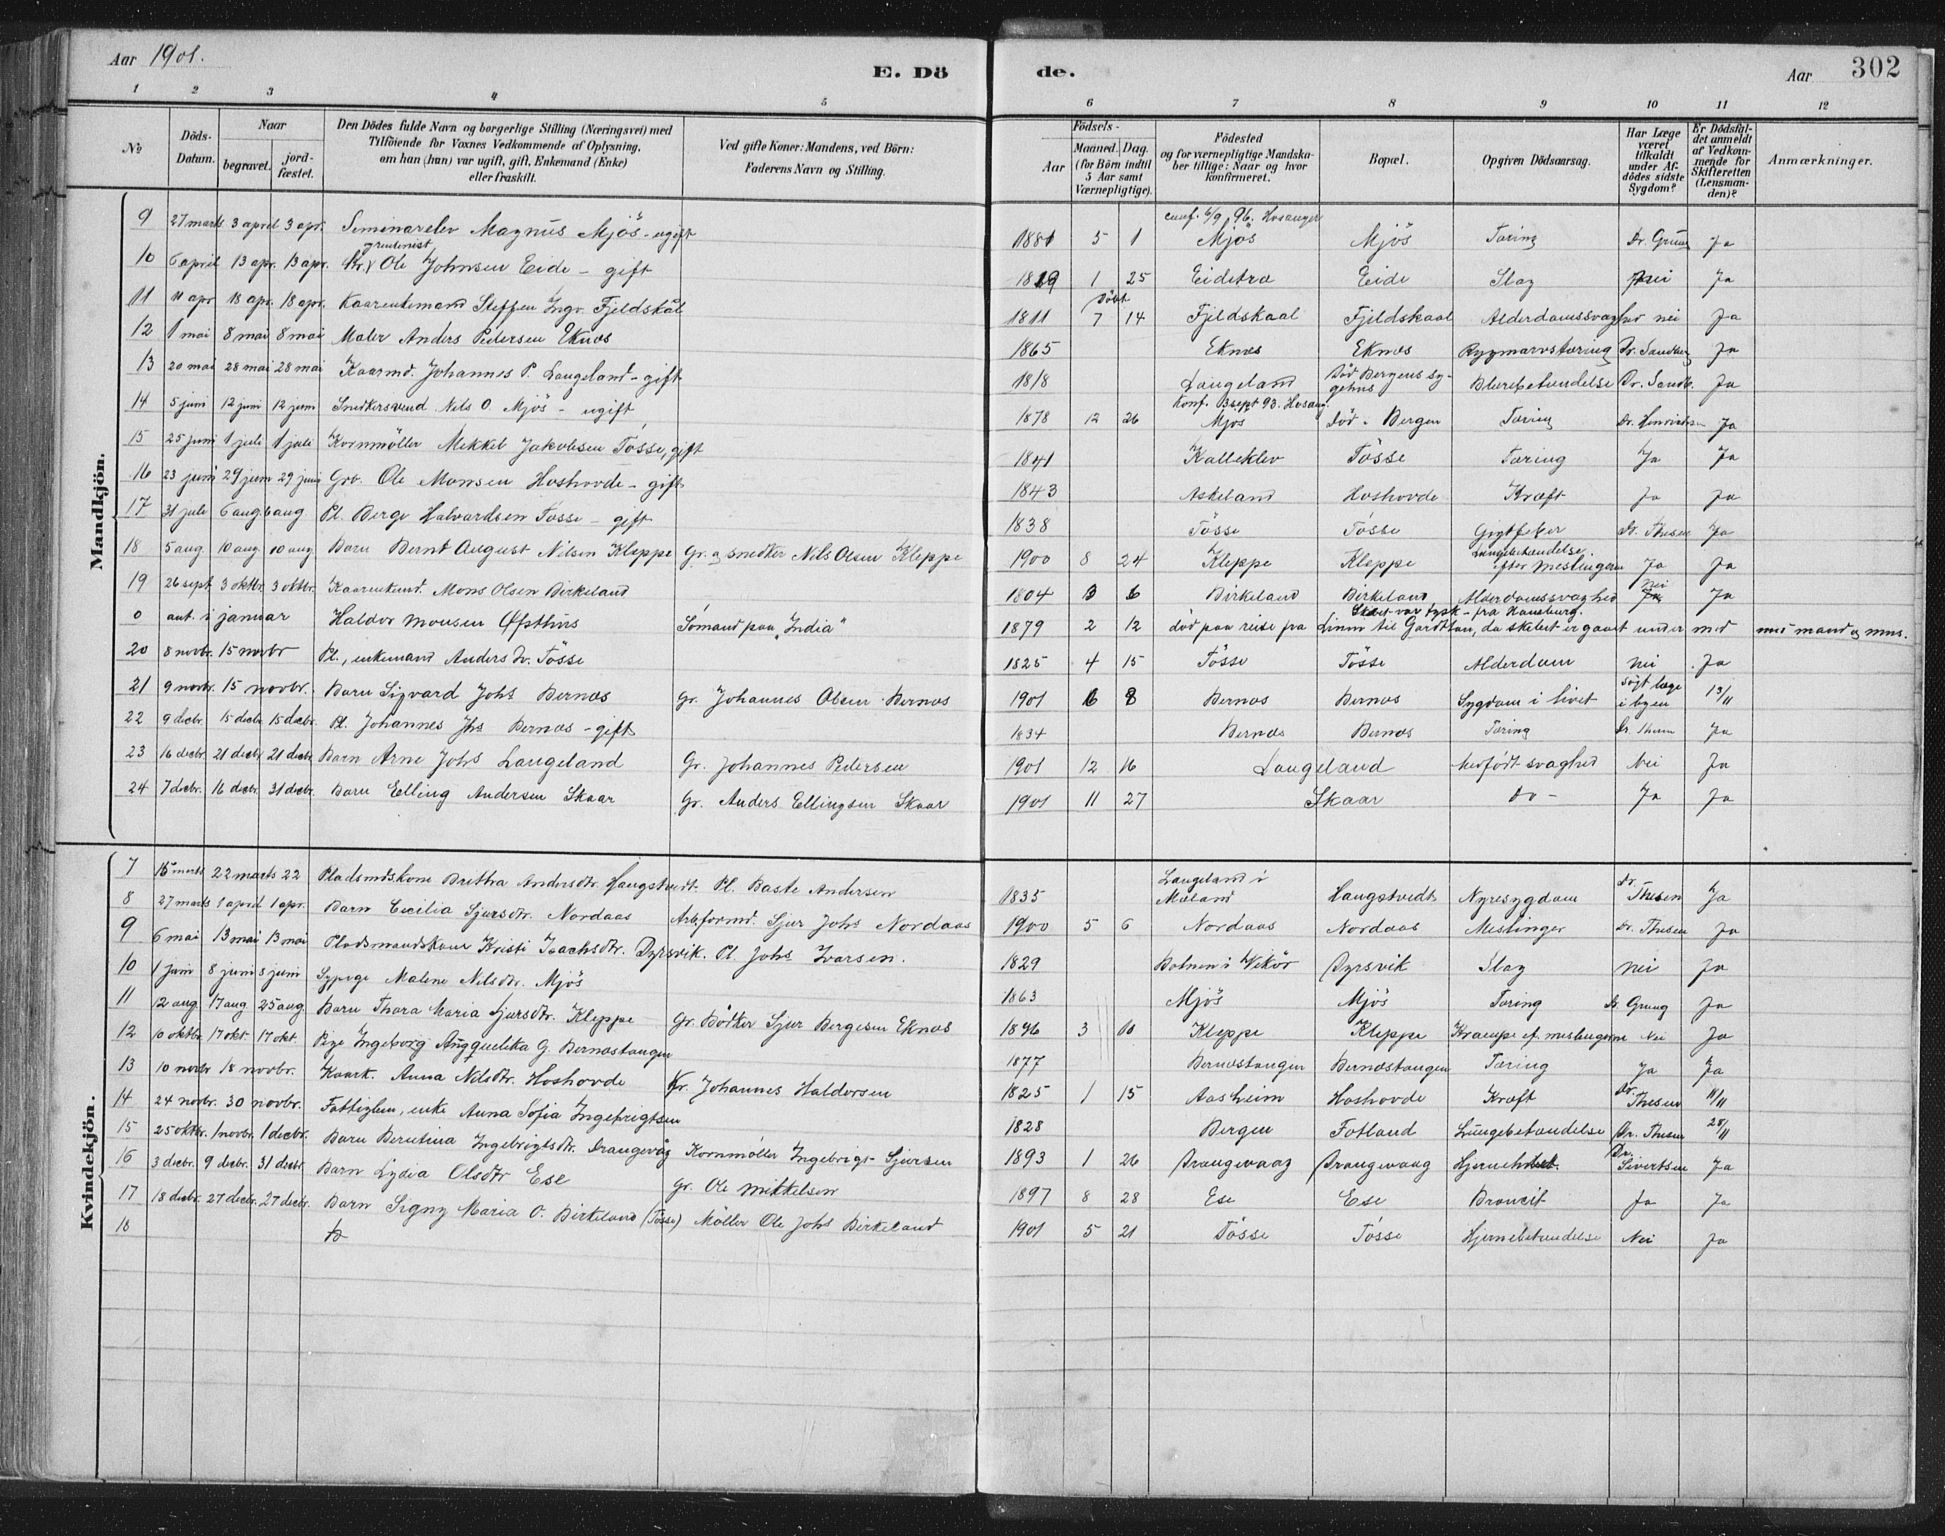 Aar 1901.
E. Dö de.
Aar 302
1 2 3 4 5 6 7 8 9 10 11 12
No
Döds-Datum.
Naar
begravet. jordfæstet.
Den Dödes fulde Navn og borgerlige Stilling (Næringsvei) med
Tilföiende for Voxnes Vedkommende af Oplysning,
om han (hun) var ugift, gift, Enkemand (Enke)
eller fraskilt.
Ved gifte Koner: Mandens, ved Börn:
Faderens Navn og Stilling.
Födsels-
Aar
Maaned. Dag.
(for Börn indtil
5 Aar samt
Værnepligtige).
Födested
og for værnepligtige Mandska-
ber tillige: Naar og hvor
konfirmeret.
Bopæl.
Opgiven Dödsaarsag.
Har Læge
været
tilkaldt
under Af-
dödes sidste
Sygdom?
Er Dödsfal-
det anmeldt
af Vedkom-
mende for
Skifteretten
(Lensman-
den)?
Anmærkninger.
Mandkjön.
9 27 marts 3 april 3 apr. Seminarelev Magnus Mjös - ugift 1881 5 1 conf. 6/9 96. Hosanger Mjös Mjös Tæring Dr. Grung Ja
10 6 april 13 apr. 13 apr. Ole Johnsen Eide - gift 1819 1 25 Eidetræ Eide Slag nei Ja
11 11 apr 18 apr. 18 apr. Kaarenkemand Steffen Ingv. Fjeldskål 1811 Döbt 7 14 Fjeldskaal Fjeldskaal Alderdomssvaghed nei Ja
12 1 mai 8 mai 8 mai Maler Anders Pedersen Eknæs 1865 Eknæs Eknæs Rygmarvstæring Dr. Sandberg Ja
13 20 mai 28 mai 28 mai Kaarmd. Johannes P. Langeland - gift 1818 Langeland Död Bergens sygehus Blærebetændelse Dr. Sandb. Ja
14 5 juni 12 juni 12 juni Snedkersvend Nils O. Mjös - ugift 1878 12 26 Konf. 3 sept 93. Hosang. Mjös Död - Bergen Tæring Ja
15 25 juni 1 juli 1 juli Kornmöller Mekkel Jakobsen Tösse, gift 1841 Kalleklev Tösse Tæring Ja Ja
16 23 juni 29 juni 29 juni Grb. Ole Monsen Hoshovde - gift 1843 Askeland Hoshovde Kræft Ja Ja
17 31 juli 6 aug. 6 aug Pl. Berge Halvardsen Tösse - gift 1838 Tösse Tösse Gigtfeber Dr. Thesen Ja
18 5 aug. 10 aug. 10 aug Barn Bernt August Nilsen Kleppe Gr. og snedker Nils Olsen Kleppe 1900 8 24 Kleppe Kleppe Lungebetændelse efter meslingerne Ja Ja
19 26 sept 3 oktbr 3 oktbr. Kaarenkemd. Mons Olsen Birkeland 1804 3 6 Birkeland Birkeland Alderdomssvaghed nei Ja
0 ant. i januar Haldor Monsen Øpsthus Sömand paa "India" 1879 2 12 död paa reise fra til da skibet er gaaet under med med mand og mus.
Skibet var tysk - fra Hamburg.
20 8 novbr. 15 novbr Pl., enkemand Anders Iv. Tösse 1825 4 15 Tösse Tösse Alderdom nei Ja
21 9 novbr. 15 novbr. Barn Sigvard Johs Bernæs Gr. Johannes Olsen Bernæs 1901 6 8 Bernæs Bernæs Sygdom i livet sögt læge i byen 13/11
22 9 decbr. 15 decbr 15 decbr. Pl. Johannes Jhs Bernæs - gift 1834 Bernæs Bernæs Tæring Ja
23 16 decbr. 21 decbr 21 decbr Barn Arne Johs Langeland Gr. Johannes Pedersen 1901 12 16 Langeland Medfödt svaghed Nei Ja
24 7 decbr. 16 decbr 31 decbr. Barn Elling Andersen Skaar Gr. Anders Ellingsen Skaar 1901 11 27 Skaar do - Ja Ja
Kvindekjön.
7 15 marts 22 marts 22 Pladsmdskone Bretha Andersdtr. Haugstvedt. Pl. Baste Andersen 1835 Langeland i Mæland Haugstvedt Nyresygdom Dr. Thesen Ja
8 27 marts 1 april 1 apr. Barn Cecilia Sjursdtr. Nordaas Arbformd. Sjur Johs Nordaas 1900 5 6 Nordaas Nordaas Meslinger Dr. Thesen Ja
9 6 mai 13 mai 13 mai Pladsmandskone Kristi Isachsdtr. Dyrsvik. Pl. Johs Ivarsen. 1829 Botnen i Vikör Dyrsvik Slag nei Ja
10 1 juni 8 juni 8 juni Sypige Malene Nilsdtr. Mjös 1863 Mjös Mjös Tæring Dr. Grung Ja
11 12 aug 17 aug 25 aug Barn Thora Maria Sjursdtr. Kleppe Gr. Bödker Sjur Bergesen Eknæs 1896 3 10 Kleppe Kleppe Krampe ef. meslingerne Nei Ja
12 10 oktbr. 17 okt. 17 okt. Pige Ingeborg G. Bernæstangen 1877 Bernæstangen Bernæstangen Tæring Ja Ja
13 10 novbr 18 novbr. Kaark. Anna Nilsdtr. Hoshovde Kr. Johannes Haldorsen 1825 1 15 Aasheim Hoshovde Kræft Dr. Thesen 11/11
14 24 novbr. 30 novbr. Fattiglem, enke Anna Sofia Ingebrigtsen 1828 Bergen Fotland Lungebetændelse Dr. Thesen 28/11
15 25 oktbr. 1 novbr. 1 decbr. Barn Berntina Ingebrigtsdtr. Drangevåg Kornmöller Ingebrigt Sjursen 1893 1 26 Drangevaag Drangevaag Dr. Sivertsen Ja
16 3 decbr. 9 decbr. 31 decbr Barn Lydia Olsdtr Ese Gr. Ole Mikkelsen 1897 8 28 Ese Ese Broncit Ja Ja
17 18 decbr. 27 decbr. 27 decbr. Barn Signy Maria O. Birkeland (Tösse) Möller Ole Johs Birkeland 1901 5 21 Tösse Tösse Hjernebetændelse Nei Ja
18